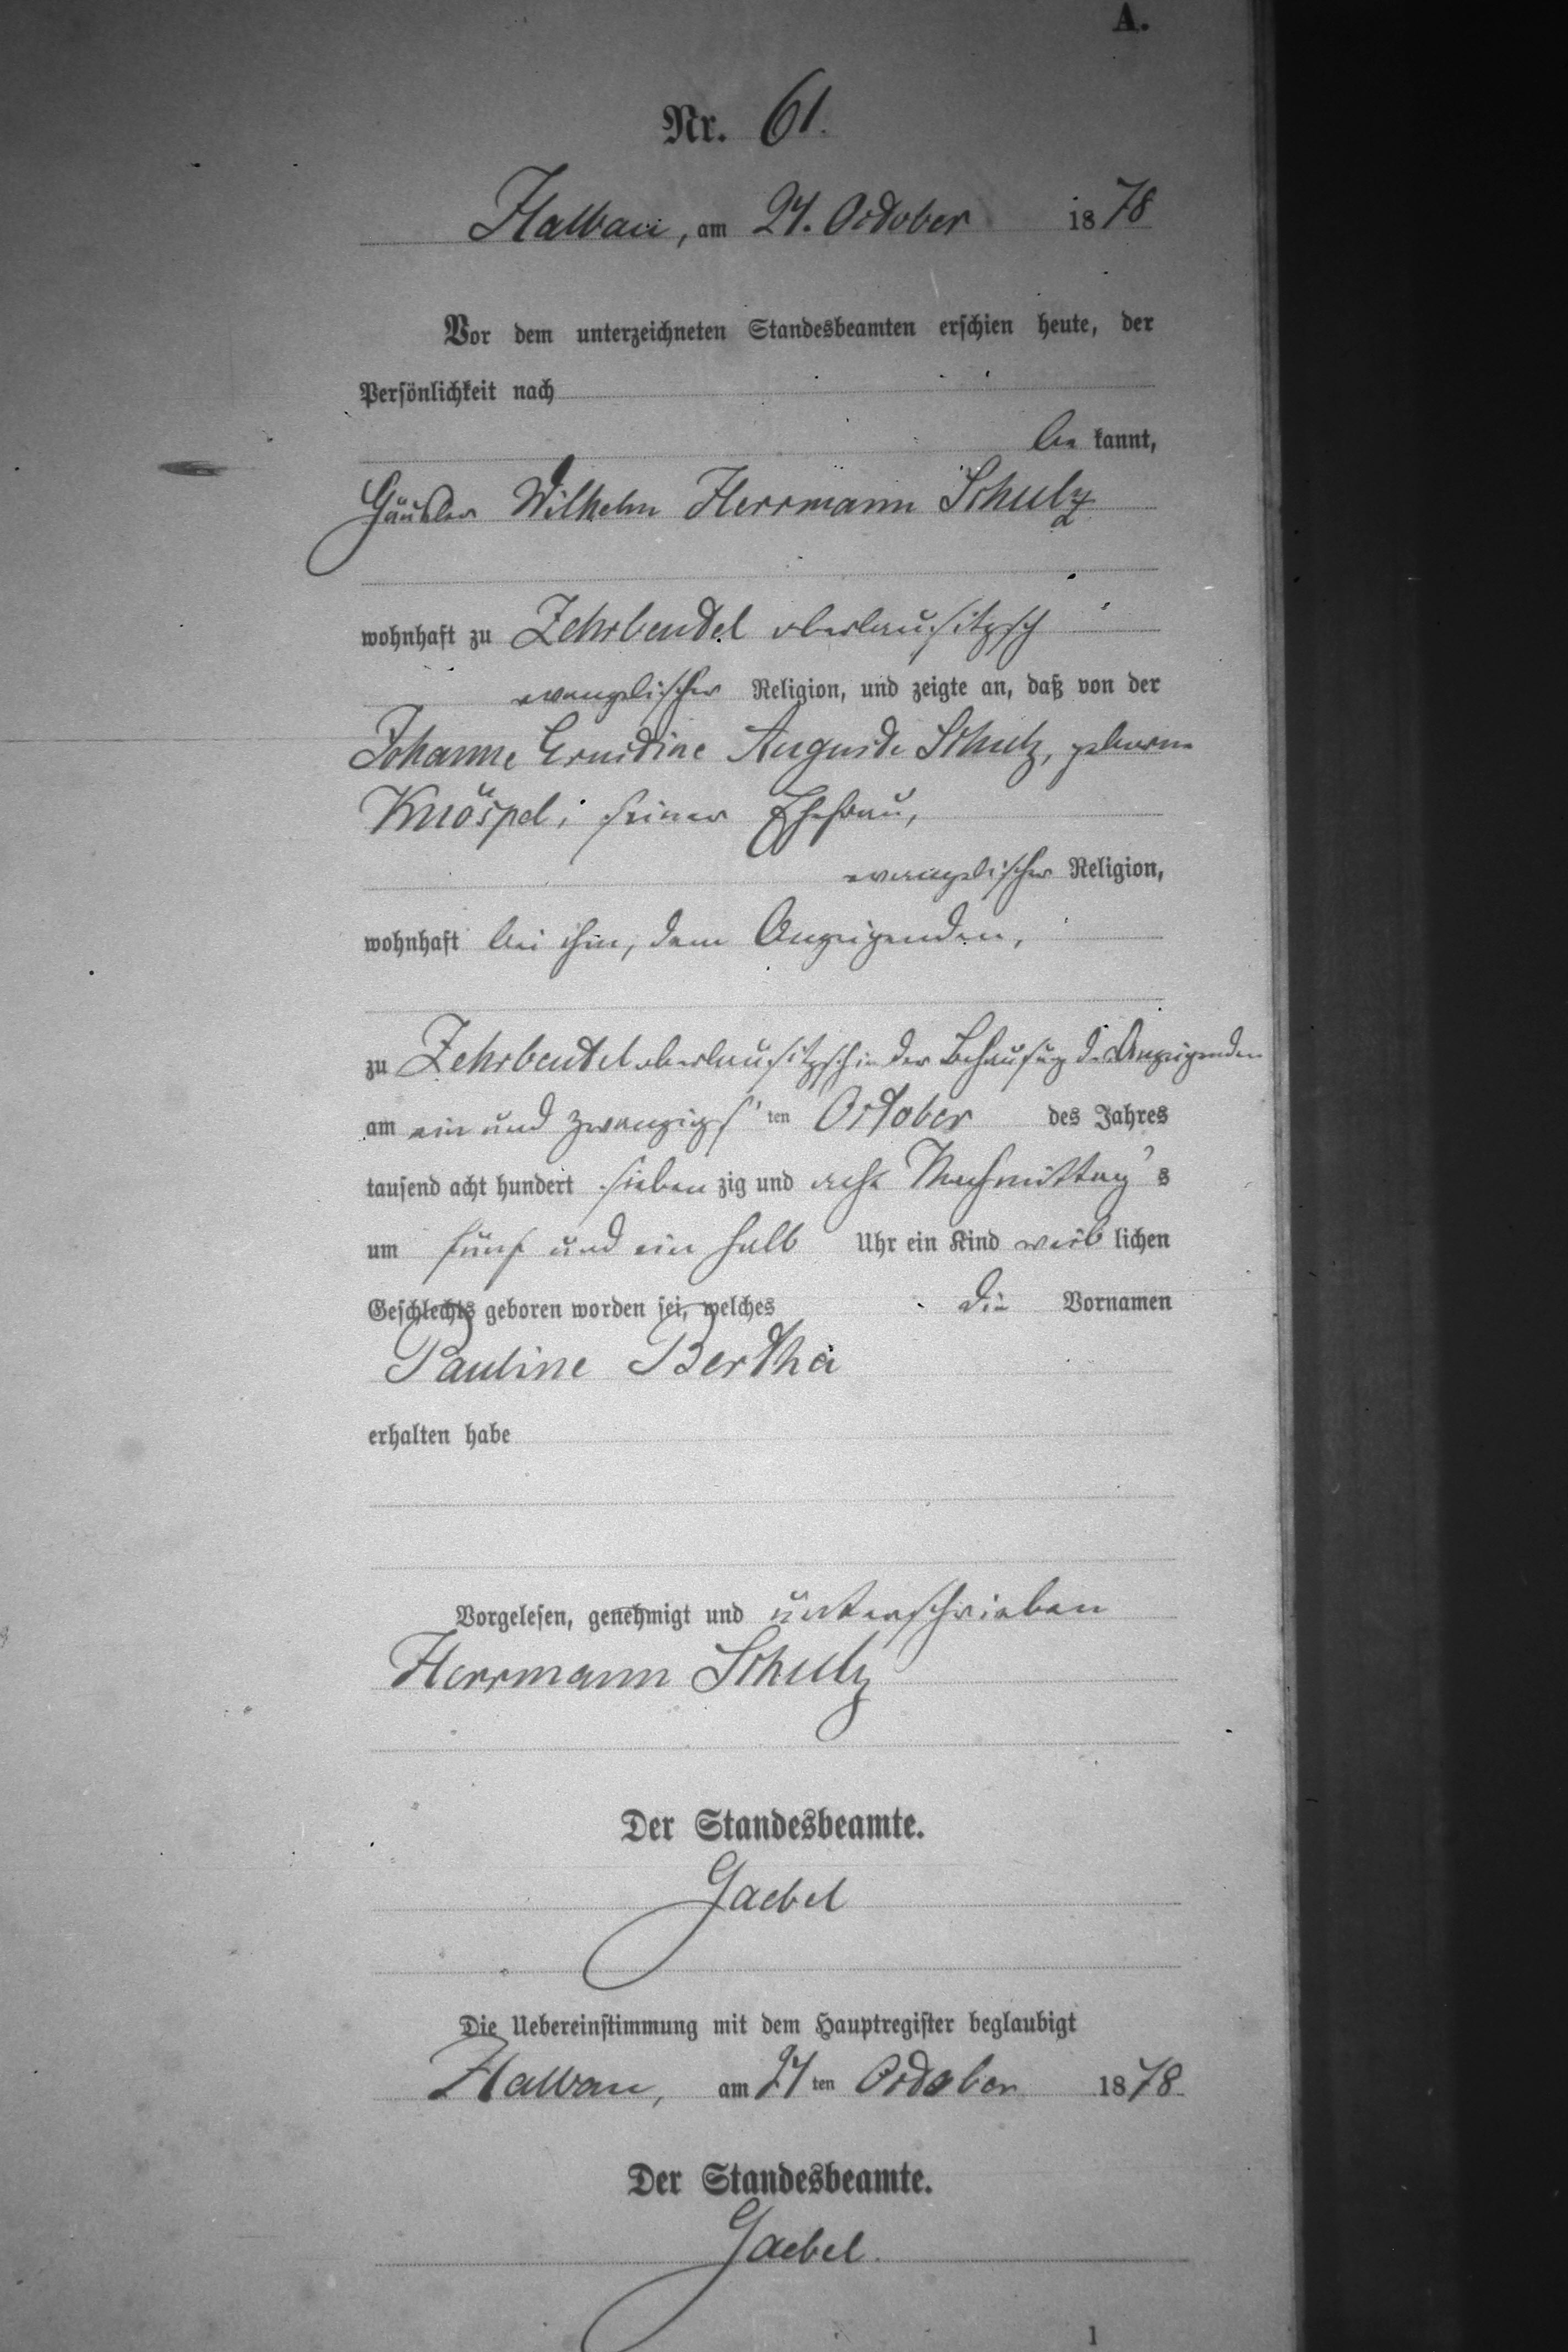 A.
Nr. 61.
Halbau, am 24. October 1878
Vor dem unterzeichneten Standesbeamten erschien heute, der
Persönlichkeit nach
be kannt,
Häusler Wilhelm Herrmann Schulz
wohnhaft zu Zehrbeutel oberlausitzsch
evangelischer Religion, und zeigte an, daß von der
Johanne Ernestine Auguste Schulz, geborne
Knöspel, seiner Ehefrau,
evangelischer Religion,
wohnhaft bei ihm, dem Anzeigenden,
zu Zehrbeutel oberlausitzsch in der Behausung d. Anzeigenden
am ein und zwanzigs ten October des Jahres
tausend acht hundert sieben zig und acht Nachmittag s
um fünf und ein halb Uhr ein Kind weib lichen
Geschlechts geboren worden sei, welches die Vornamen
Pauline Bertha
erhalten habe
Vorgelesen, genehmigt und unterschrieben
Herrmann Schulz
Der Standesbeamte.
Gaebel
Die Uebereinstimmung mit dem Hauptregister beglaubigt
Halbau, am 24 ten October 1878.
Der Standesbeamte.
Gaebel.
1